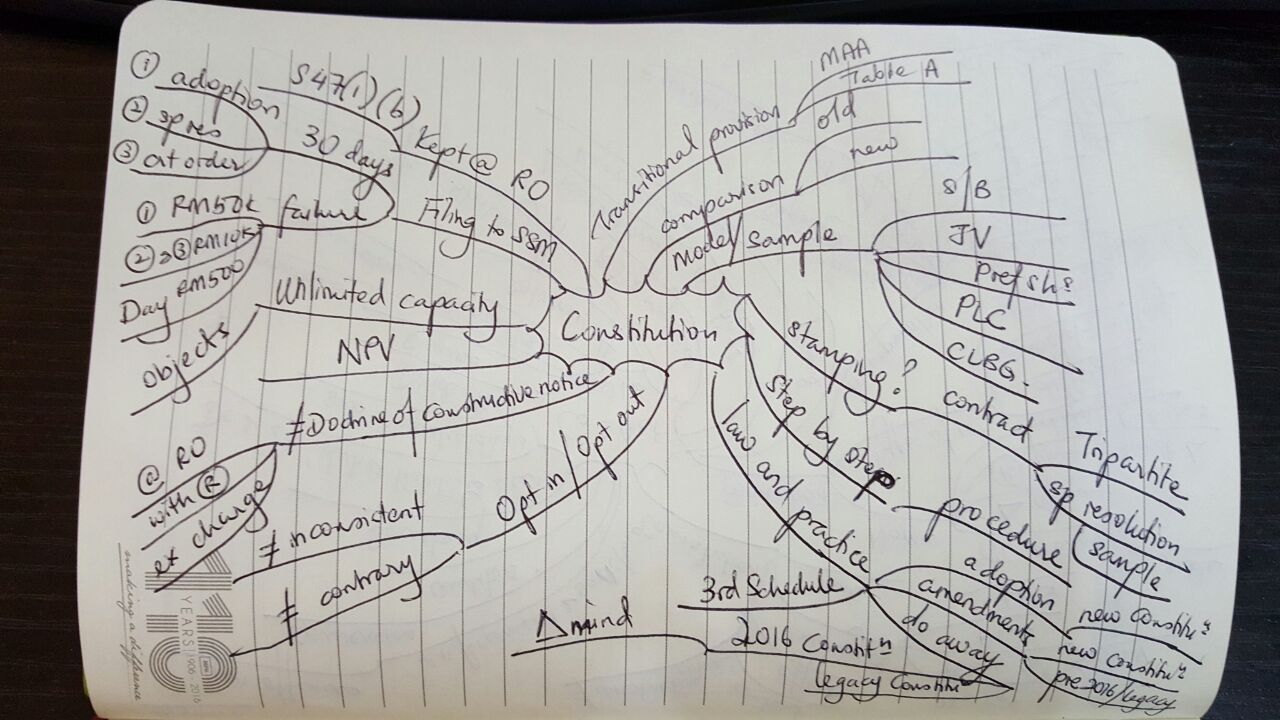 Constitution
Transitional provision
MAA
Table A
comparison
old
new
Model/Sample
S/B
JV
Pref shs
PLC
CLBG.
stamping?
contract
Tripartite
sp resolution
sample
step by step
procedure
law and practice
adoption
new Constitun
amendments
new constitun
do away
pre 2016/legacy
3rd Schedule
2016 Constitn
legacy Constitun
Δ mind
Opt in/Opt out
≠ inconsistent
≠ contrary
≠ Doctrine of constructive notice
@ RO
with Ⓡ
ex change
NPV
Unlimited capacity
objects
Filing to SSM
30 days
① adoption
② sp res
③ crt order
failure
① RM50k
② & ③ RM10k
Day RM500
Kept @ RO
S47(1)(b)
110
YEARS
1906 2016
making a difference